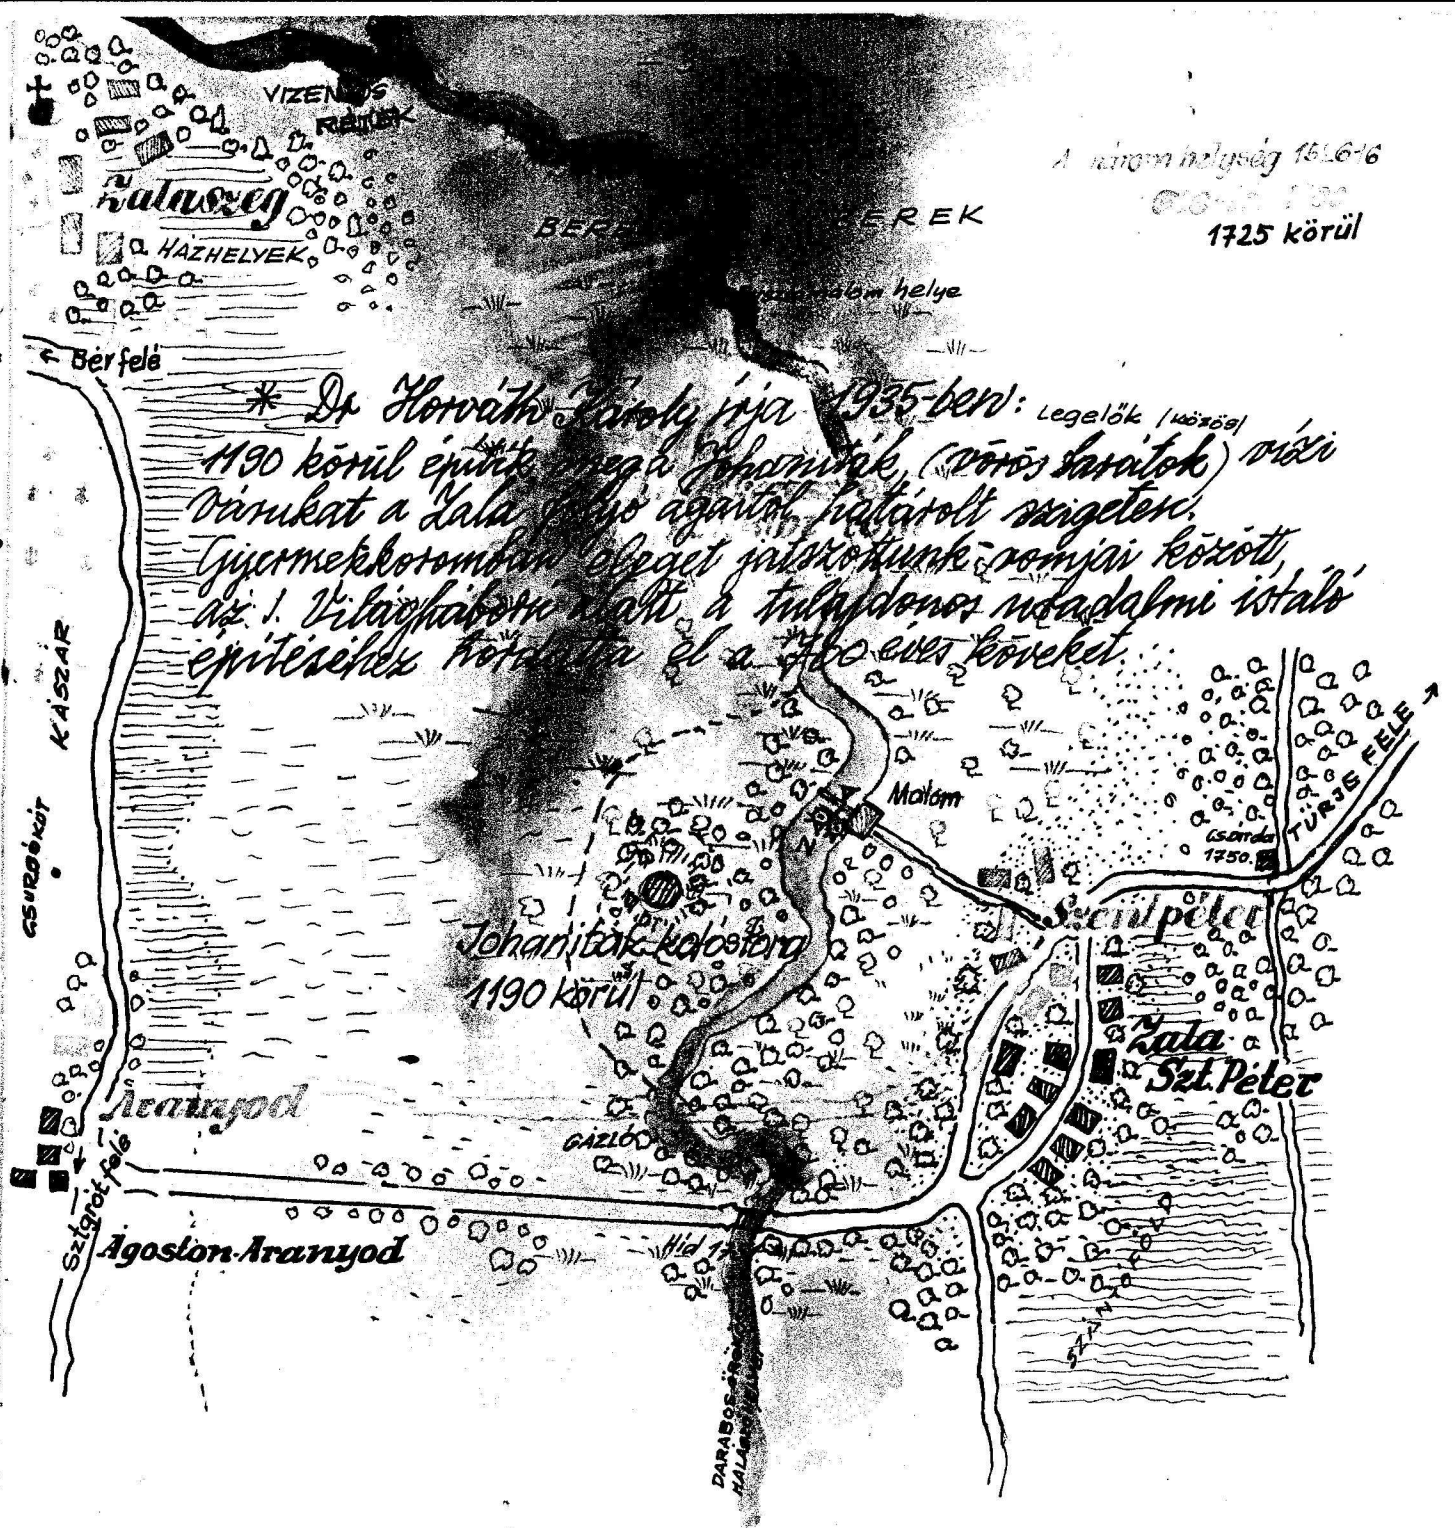 VIZENYŐS
RÉTEK
A három helység
1725 körül
Zalaszeg
HÁZHELYEK
BEREK
malom helye
← Bér felé
* Dr Horváth Károly írja 1935-ben:
Legelők /közös/
1190 körül építik meg a Johaniták (vörös barátok) vízi
várukat a Zala folyó ágaitól határolt szigeten.
Gyermekkoromban eleget játszottunk romjai között,
az I. Világháború alatt a tulajdonos uradalmi istáló
építéséhez hordatta el a 700 éves köveket.
KÁSZÁR
CSURGÓKÚT
TÜRJE FELÉ →
Malom
ZALA
Csárda
1750.
Szentpéter
Johaniták kolostora
1190 körül
Zala
Szt. Péter
Aranyod
GÁZLÓ
Sztgrót felé
Agoston-Aranyod
Híd
SZÁNTÓFÖLD